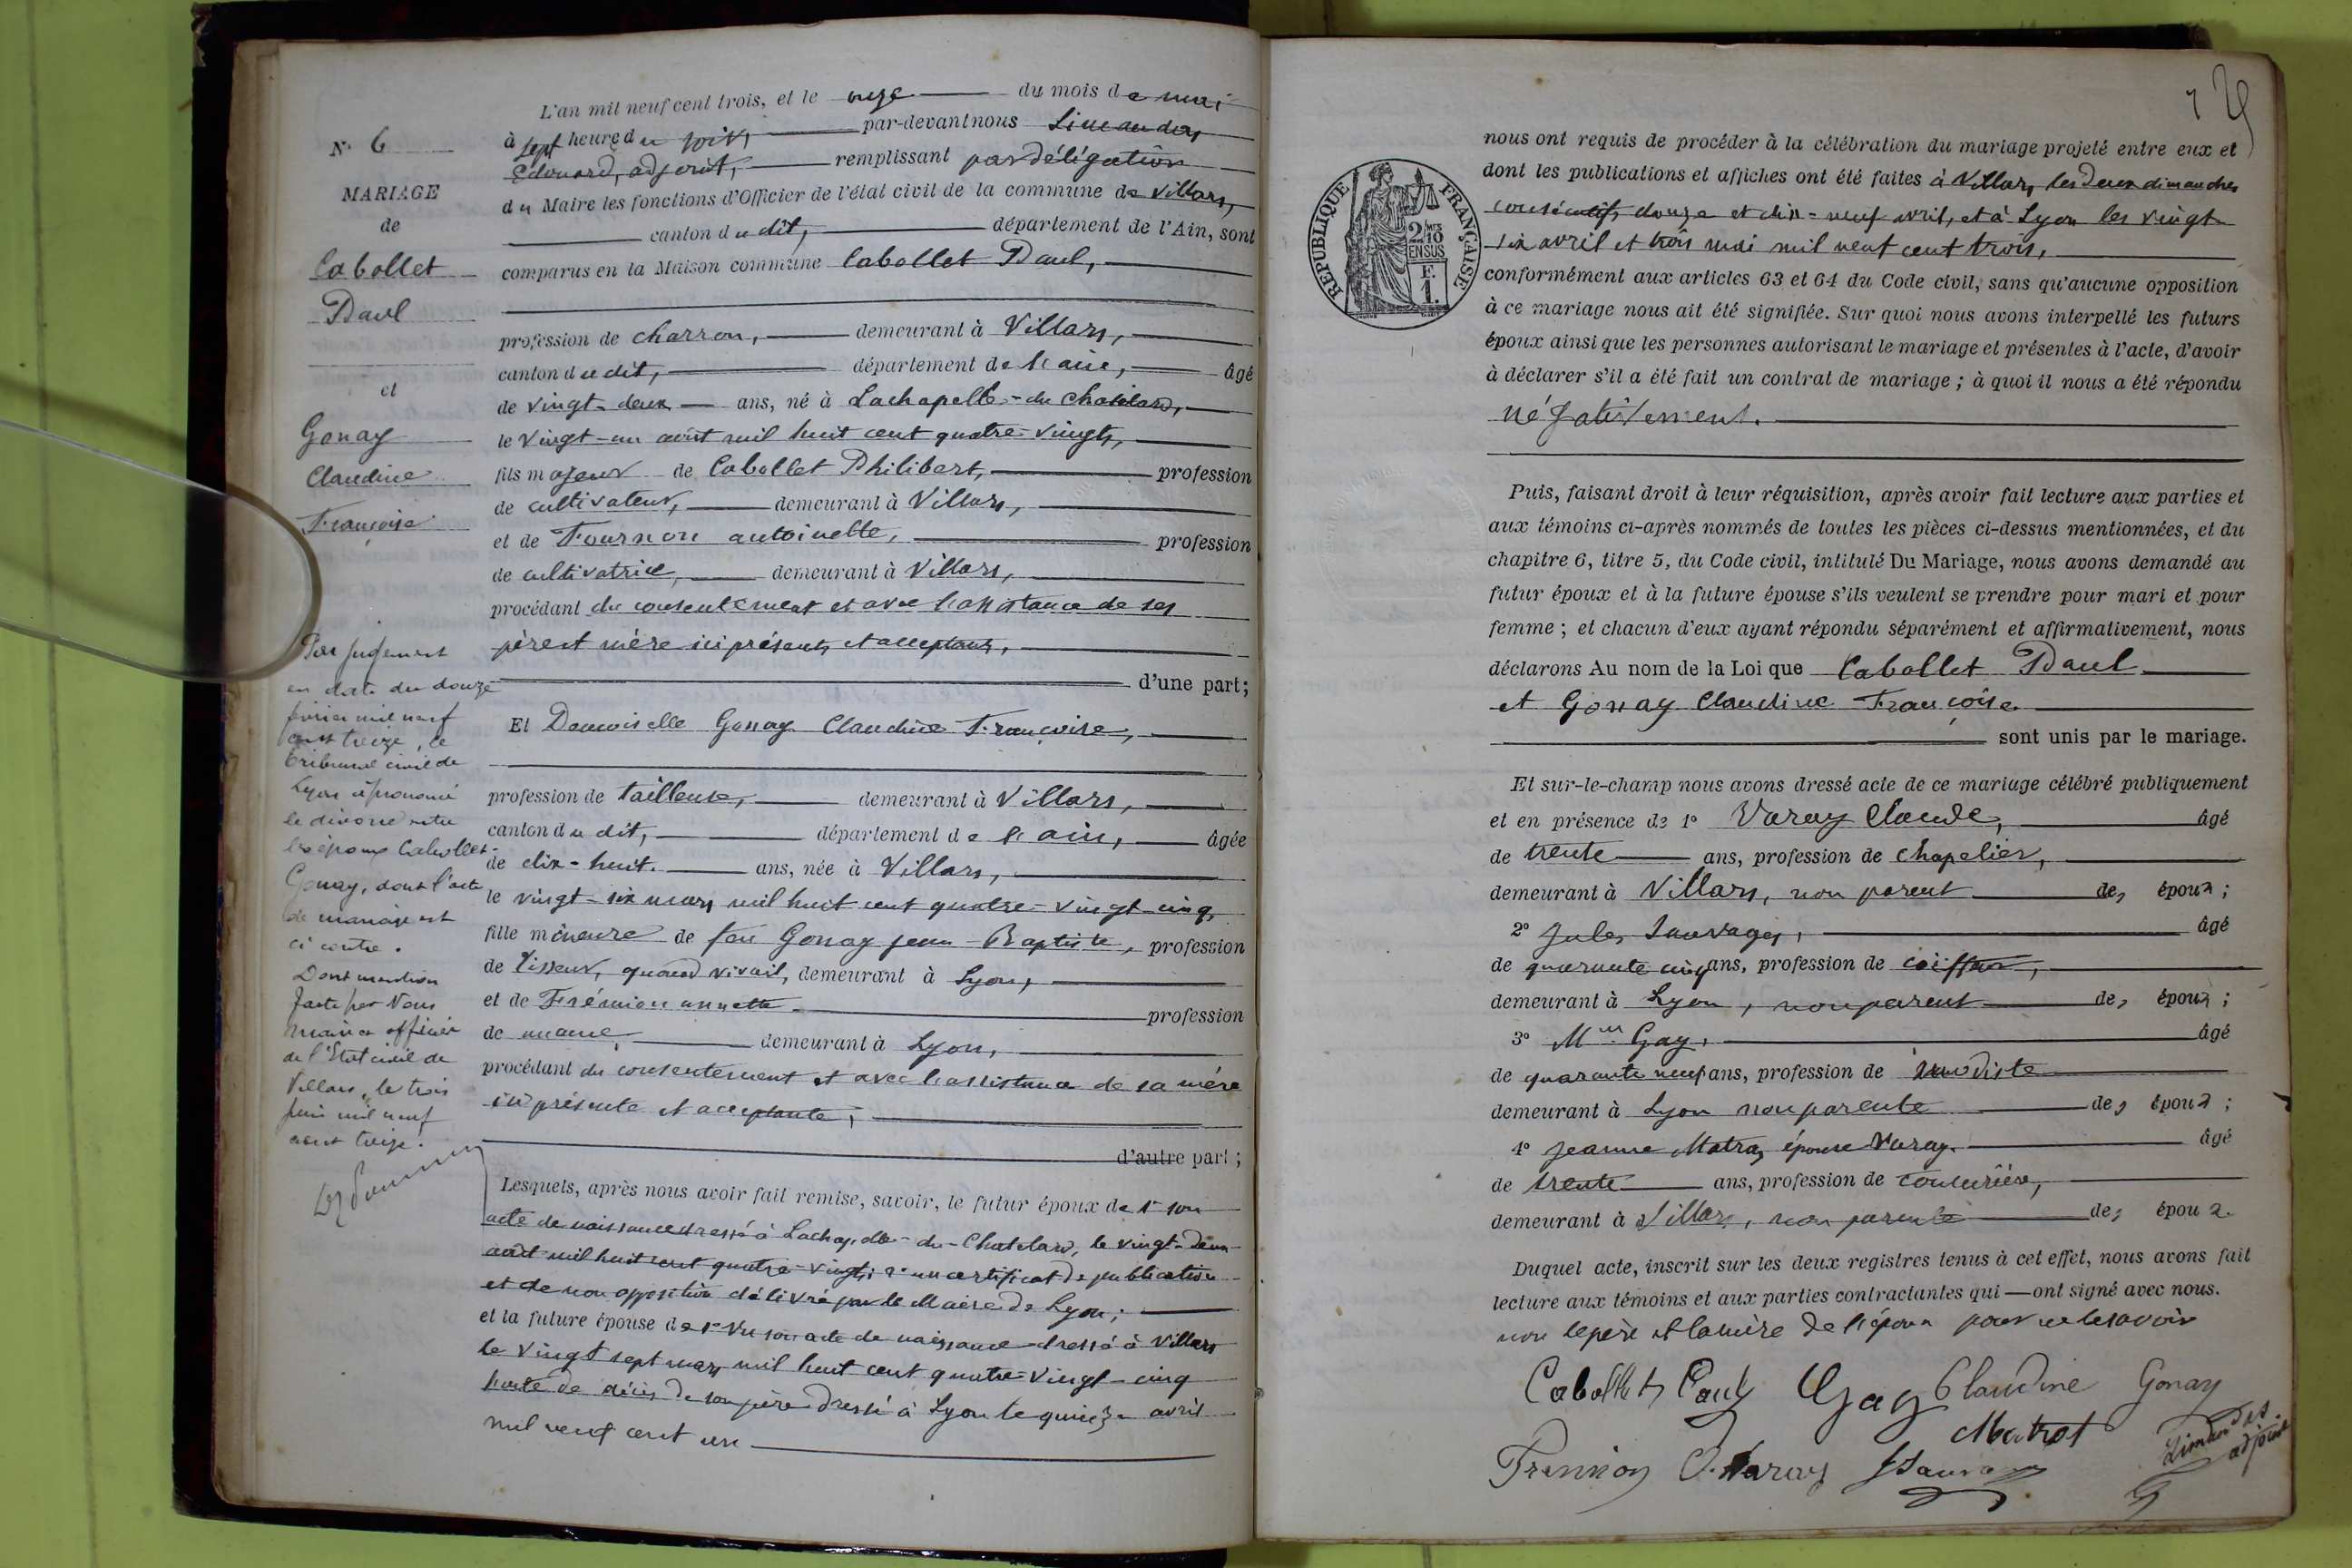 N° 6
MARIAGE
de
Cabollet
Paul
et
Gonay
Claudine
Françoise
Par jugement
en date du douze
février mil neuf
cent treize, le
tribunal civil de
Lyon a prononcé
le divorce entre
les époux Cabollet-
Gonay, dont l'acte
de mariage est
ci contre.
Dont mention
faite par Nous
maire officier
de l'Etat civil de
Villars, le trois
juin mil neuf
cent treize.
L'an mil neuf cent trois, et le onze du mois de mai
à sept heure du soir, par-devant nous
Edouard, adjoint, remplissant par délégation
du Maire les fonctions d'Officier de l'état civil de la commune de Villars,
canton du dit, département de l'Ain, sont
comparus en la Maison commune Cabollet Paul,
profession de charron, demeurant à Villars,
canton du dit, département de l'ain, âgé
de vingt-deux ans, né à Lachapelle-du Chatelard,
le vingt-un août mil huit cent quatre-vingts,
fils majeur de Cabollet Philibert, profession
de cultivateur, demeurant à Villars,
et de Fournon antoinette, profession
de cultivatrice, demeurant à Villars,
procédant du consentement et avec l'assistance de ses
père et mère ici présents et acceptants,
d'une part;
Et Demoiselle Gonay Claudine Françoise,
profession de tailleuse, demeurant à Villars,
canton du dit, département de l'ain, âgée
de dix-huit ans, née à Villars,
le vingt-six mars mil huit cent quatre-vingt-cinq,
fille mineure de feu Gonay jean-Baptiste, profession
de tisseur, quand vivait, demeurant à Lyon,
et de Frémion annette profession
de demeurant à Lyon,
procédant du consentement et avec l'assistance de sa mère
ici présente et acceptante,
d'autre part;
Lesquels, après nous avoir fait remise, savoir, le futur époux de 1° son
acte de naissance dressé à Lachapelle-du-Chatelard, le vingt-deux
août mil huit cent quatre-vingts; 2° un certificat de publication
et de non opposition délivré par le Maire de Lyon;
et la future épouse de 1° Vu son acte de naissance dressé à Villars
le vingt sept mars mil huit cent quatre-vingt-cinq
l'acte de décès de son père dressé à Lyon le quinze avril
mil neuf cent un
REPUBLIQUE FRANÇAISE
2/10 EN SUS
F. 1.
nous ont requis de procéder à la célébration du mariage projeté entre eux et
dont les publications et affiches ont été faites à Villars, les deux dimanches
consécutifs, douze et dix-neuf avril, et à Lyon les vingt
six avril et trois mai mil neuf cent trois,
conformément aux articles 63 et 64 du Code civil, sans qu'aucune opposition
à ce mariage nous ait été signifiée. Sur quoi nous avons interpellé les futurs
époux ainsi que les personnes autorisant le mariage et présentes à l'acte, d'avoir
à déclarer s'il a été fait un contrat de mariage; à quoi il nous a été répondu
négativement.
Puis, faisant droit à leur réquisition, après avoir fait lecture aux parties et
aux témoins ci-après nommés de toutes les pièces ci-dessus mentionnées, et du
chapitre 6, titre 5, du Code civil, intitulé Du Mariage, nous avons demandé au
futur époux et à la future épouse s'ils veulent se prendre pour mari et pour
femme; et chacun d'eux ayant répondu séparément et affirmativement, nous
déclarons Au nom de la Loi que Cabollet Paul
et Gonay Claudine Françoise
sont unis par le mariage.
Et sur-le-champ nous avons dressé acte de ce mariage célébré publiquement
et en présence de 1° Varay Claude, âgé
de trente ans, profession de chapelier,
demeurant à Villars, non parent des époux;
2° Jules Sauvages, âgé
de quarante cinq ans, profession de coiffeur,
demeurant à Lyon, non parent des époux;
3° Gay, âgé
de quarante neuf ans, profession de modiste
demeurant à Lyon non parente des époux;
4° Jeanne Matras, épouse Varay. âgé
de trente ans, profession de couturière,
demeurant à Villars, non parente des époux.
Duquel acte, inscrit sur les deux registres tenus à cet effet, nous avons fait
lecture aux témoins et aux parties contractantes qui — ont signé avec nous.
non le père et la mère de l'époux pour ne le savoir
Cabollet Paul Gay Claudine Gonay
Matrat
adjoint
Fremion C. Varay